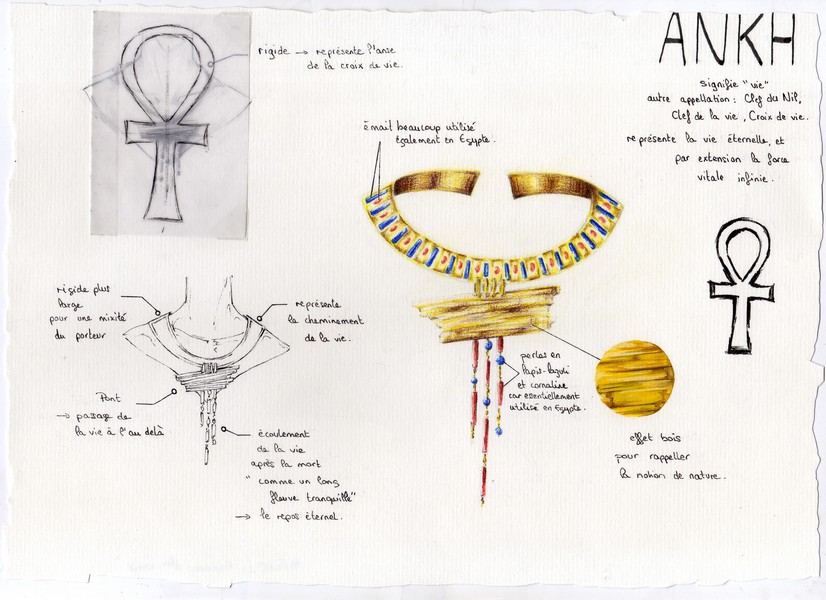 ANKH
signifie "vie"
autre appellation : Clef du Nil,
Clef de la vie, Croix de vie.
représente la vie éternelle, et
par extension la force
vitale infinie.
rigide → représente l'anse
de la croix de vie.
émail beaucoup utilisé
également en Egypte.
rigide plus
large
pour une mixité
du porteur
représente
le cheminement
de la vie.
Pont
→ passage de
la vie à l'au delà
écoulement
de la vie
après la mort
"comme un long
fleuve tranquille"
→ le repos éternel.
perles en
lapis-lazuli
et cornaline
car essentiellement
utilisé en Egypte.
effet bois
pour rappeller
la notion de nature.